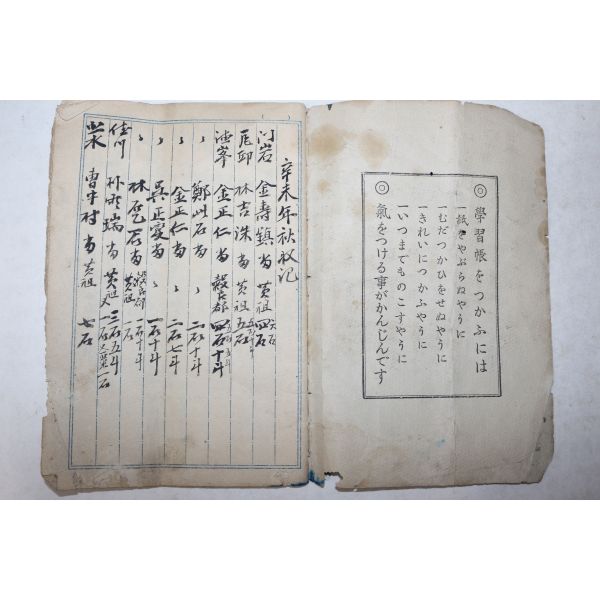 ◎學習帳をつかふには
一紙をやぶらぬやうに
一むだつかひをせぬやうに
一きれいにつかふやうに
一いつまでものこすやうに
◎氣をつける事がかんじんです
辛未年秋收記
门岩 金壽鎮 畓 黃租 四石
林吉洙 畓 黃租 五石
金正仁 畓 四石十斗
〻 鄭 石 畓 〻 二石十斗
〻 金正仁 畓 〻 二石七斗
〻 吳正 畓 〻 一石十斗
〻 林 石 畓 黃租 一石十斗
佳川 朴 瑞 畓 黃租 三石五斗
曺 村 畓 黃租 七石